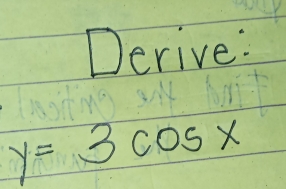 Derive:
y = 3 cos x